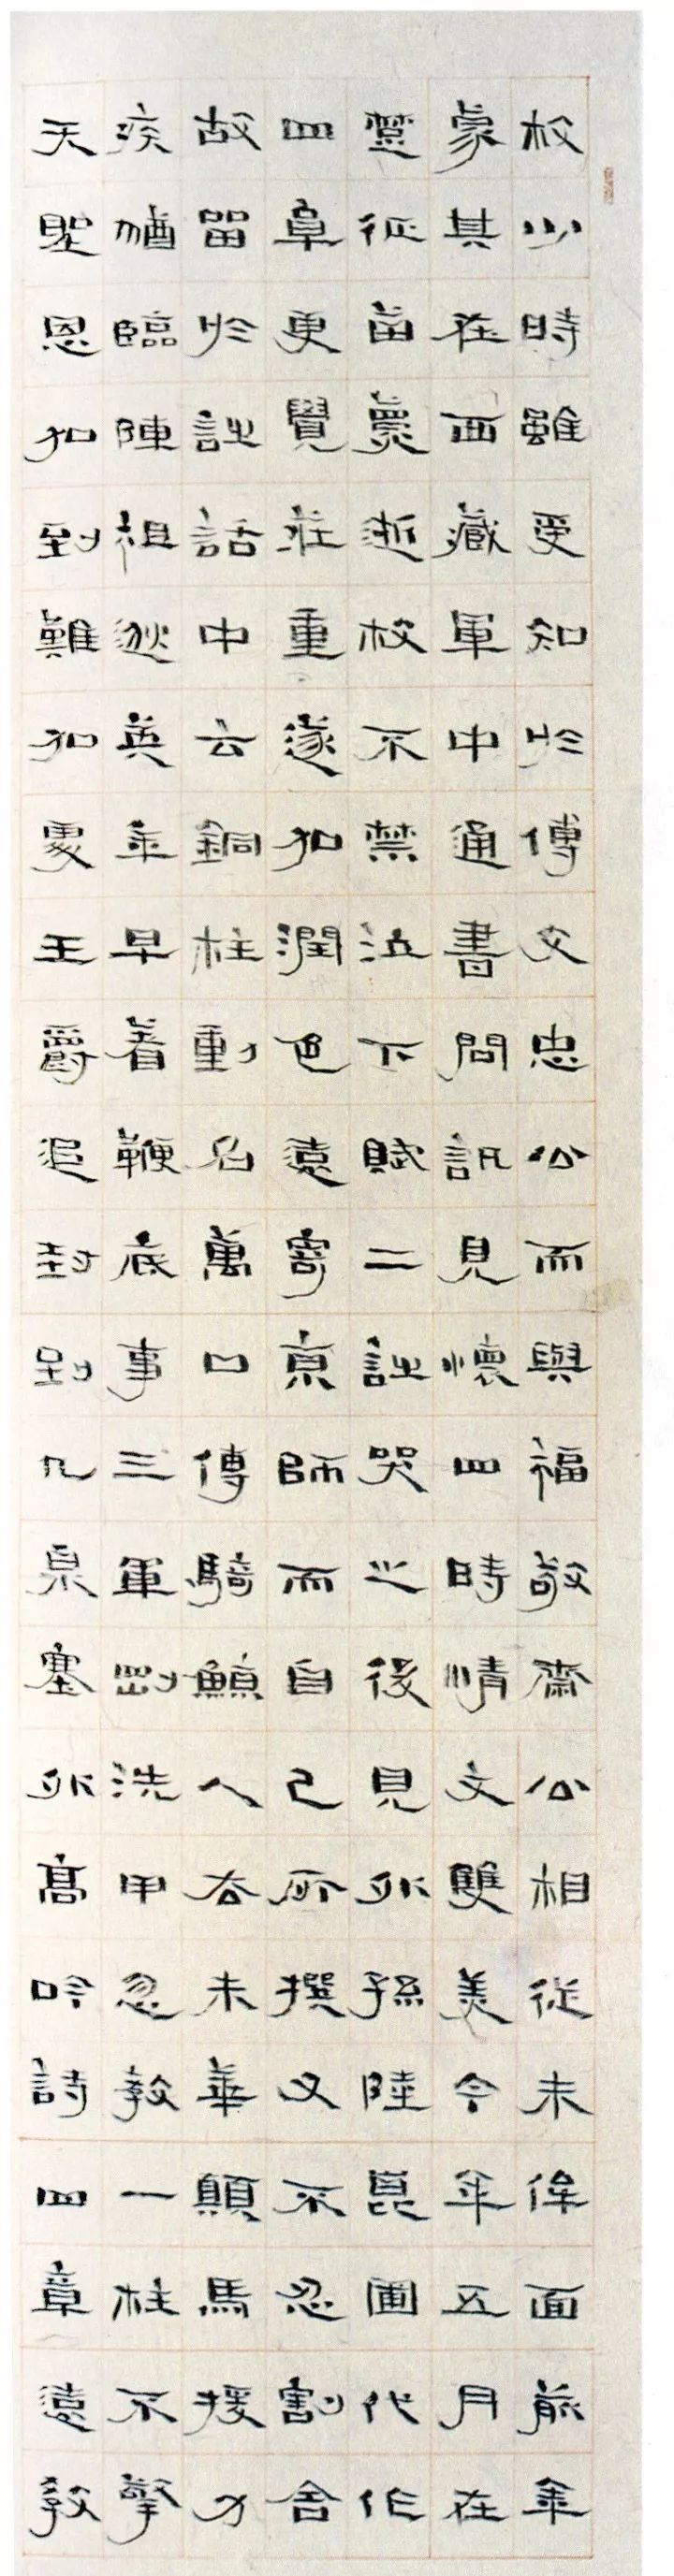 枚少時雖受知於傅文忠公而與福敬齋公相從未侔面前年
蒙其在西藏軍中通書問訊見懷四時情文雙美今年五月在
楚征苗薨逝枚不禁泣下賦二詩哭之後見外孫陸崑圃代作
四章更覺莊重遂加潤色遠寄京師而自己所撰又不忍割舍
故留於詩話中云銅柱動名萬口傳騎鯨人去未華顛馬援力
疾猶臨陣祖逖英年早着鞭底事三軍剛洗甲忽教一柱不擎
天聖恩加到難加處王爵追封到九泉塞外高吟詩四章遠教